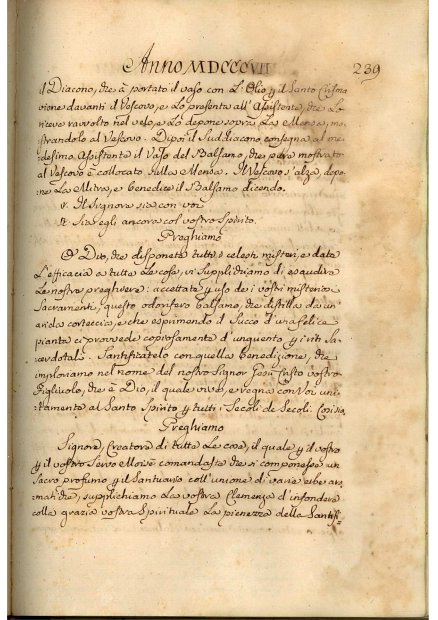 Anno MDCCCCVII 239
il Diacono, che à portato il vaso con l'Olio p il Santo Crisma
viene davanti il Vescovo, e lo presenta all'Assistente, che lo
riceve ravvolto nel velo, e lo depone sopra la Mensa, mo-
strandolo al Vescovo. Dipoi il Suddiacono consegna al me-
desimo Assistente il Vaso del Balsamo, che pure mostrato
al Vescovo è collocato sulla Mensa. Il Vescovo s'alza, depo-
ne la Mitra, e benedice il Balsamo dicendo.
V. Il Signore sia con voi
R. Sia egli ancora col vostro Spirito.
Preghiamo
O' Dio, che disponete tutti i celesti misteri, e date
l'efficacia a tutte le cose, vi supplichiamo di esaudire
le nostre preghiere: accettate p uso de i vostri misteriosi
Sacramenti, questo odorifero balsamo, che distilla da un'
arida corteccia, e che esprimendo il succo d'una felice
pianta ci provvede copiosamente d'unguento p i riti Sa-
cerdotali. Santificatelo con quella benedizione, che
imploriamo nel nome del nostro Signor Gesù Cristo vostro
Figliuolo, che è Dio, il quale vive, e regna con Voi uni-
tamente al Santo Spirito p tutti i Secoli de Secoli. Così sia
Preghiamo
Signore, Creatore di tutte le cose, il quale p il vostro
p il vostro Servo Moisè comandaste che si componesse un
Sacro profumo p il Santuario coll'unione di varie erbe aro-
matiche, supplichiamo la vostra Clemenza d'infondere
colla grazia vostra Spirituale la pienezza della Santifi-